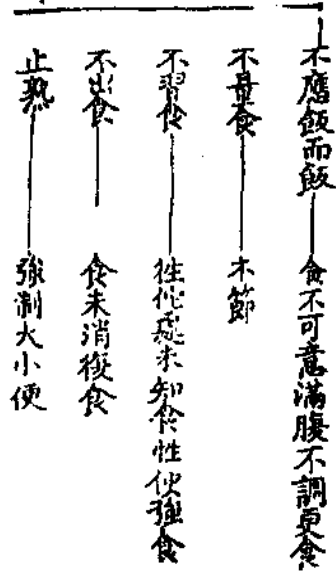 不應飯而飯——食不可意滿腹不調更食
不量食——不節
不習食——性他處未知食性使強食
不出食——食未消復食
止熟——強制大小便